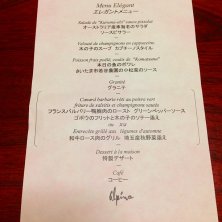 Menu Elégant
エレガントメニュー
Salade de "Kurama-ebi" sauce pistalas
オーストラリア産車海老のサラダ
ソースピサラー
Velouté de champignons en cappuccino
木の子のスープ カプチーノスタイル
Poisson frais poêlé, coulis de "Komatsuna"
本日の魚のポワレ
さいたま市岩井農園の小松菜のソース
Granité
グラニテ
Canard barbarie rôti au poivre vert
friture de salsifis et champignons sautés
フランスバルバリー鴨胸肉のロースト グリーンペッパーソース
ゴボウのフリットと木の子のソテー添え
ou または
Entrecôte grillé aux légumes d'automne
和牛ロース肉のグリル 埼玉産秋野菜添え
Dessert à la maison
特製デザート
Café
コーヒー
Alpina